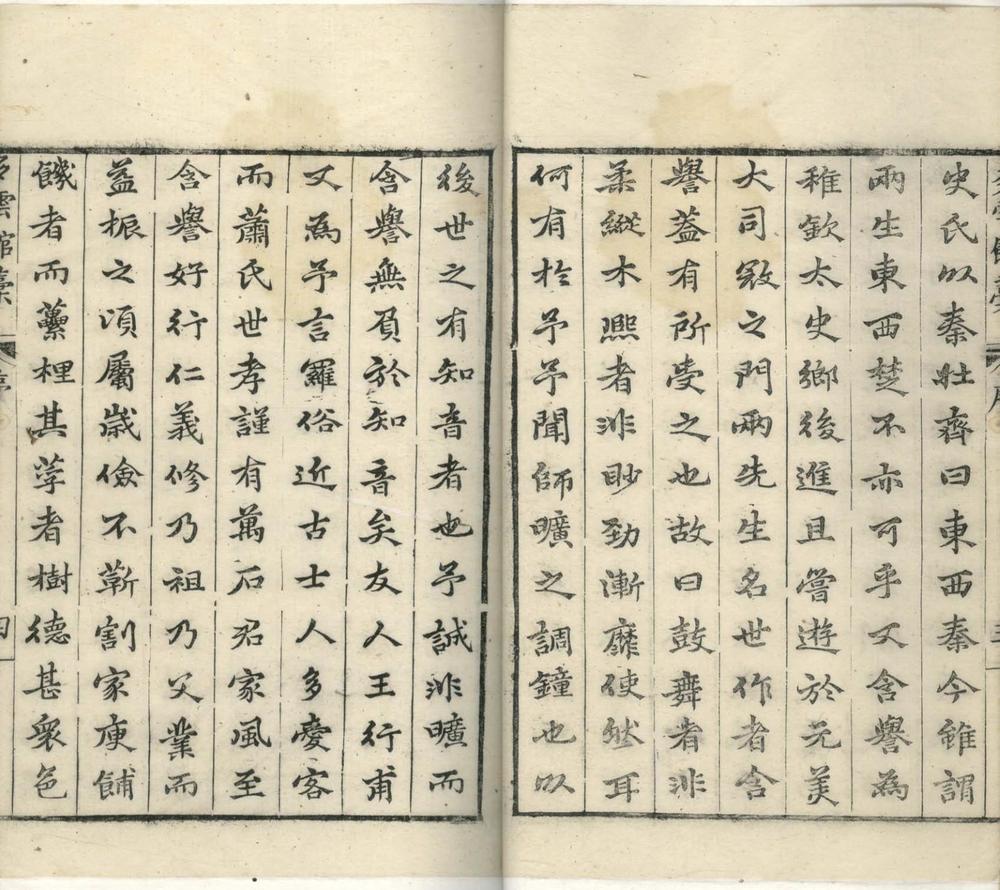 史氏以秦壯齊曰東西秦今雖謂
兩生東西楚不亦可乎又含譽為
稚欽太史鄉後進且嘗遊於元美
大司寇之門兩先生名世作者含
譽葢有所受之也故曰鼓舞者非
柔縱木熙者非眇勁漸靡使然耳
何有於予予聞師曠之調鐘也以
後世之有知音者也予誠非曠而
含譽無負於知音矣友人王行甫
又為予言羅俗近古士人多慶客
而蕭氏世孝謹有萬石君家風至
含譽好行仁義修乃祖乃父業而
益振之頃屬歲儉不蘄割家庾餔
饑者而虆梩其莩者樹德甚衆邑
雲館藁